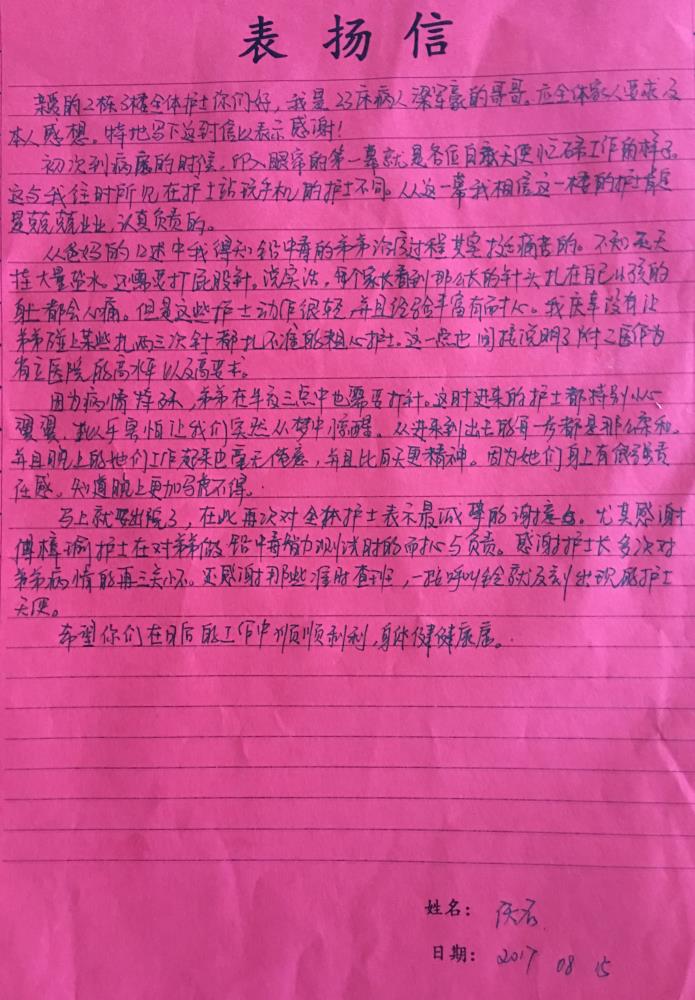 表扬信
亲爱的2栋3楼全体护士你们好，我是23床病人梁军豪的哥哥。应全体家人要求及
本人感想。特地写下这封信以表示感谢！
初次到病房的时候，印入眼帘的第一幕就是各位白衣天使忙碌工作的样子。
这与我往时所见在护士站玩手机的护士不同。从这一幕我相信这一楼的护士肯定
是兢兢业业，认真负责的。
从爸妈的口述中我得知铅中毒的弟弟治疗过程其实挺痛苦的。不知每天
挂大量盐水。还需要打屁股针，说实话，每个家长看到那么长的针头扎在自己小孩的
身上都会心痛。但是这些护士动作很轻，并且经验丰富有耐心。我庆幸没有让
弟弟碰上某些扎两三次针都扎不准的粗心护士。这一点也间接说明了附二医作为
省立医院的高水平以及高要求。
因为病情特殊，弟弟在半夜三点中也需要打针。这时进来的护士都特别小心
翼翼，似乎害怕让我们突然从梦中惊醒。从进来到出去的每一步都是那么亲和。
并且晚上的她们工作起来也毫无倦意，并且比白天更精神。因为她们身上有很强责
任感。知道晚上更加马虎不得。
马上就要出院了，在此再次对全体护士表示最诚挚的谢意。尤其感谢
傅 瑜护士在对弟弟做铅中毒智力测试时的耐心与负责。感谢护士长多次对
弟弟病情的再三关怀。还感谢那些准时查班，一按呼叫铃就及刻出现的护士
天使。
希望你们在日后的工作中顺顺利利，身体健健康康。
姓名：
日期：2017 08 15